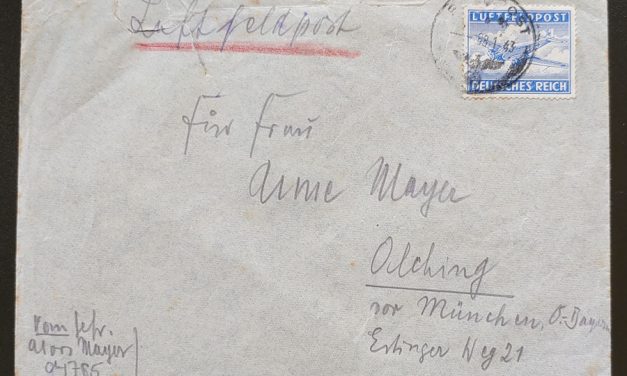 Luftfeldpost
LUFTFELDPOST
DEUTSCHES REICH
Für Frau
Anne Mayer
Olching
vor München, O.-Bayern
Estinger Weg 21
vom Gefr.
Alois Mayer